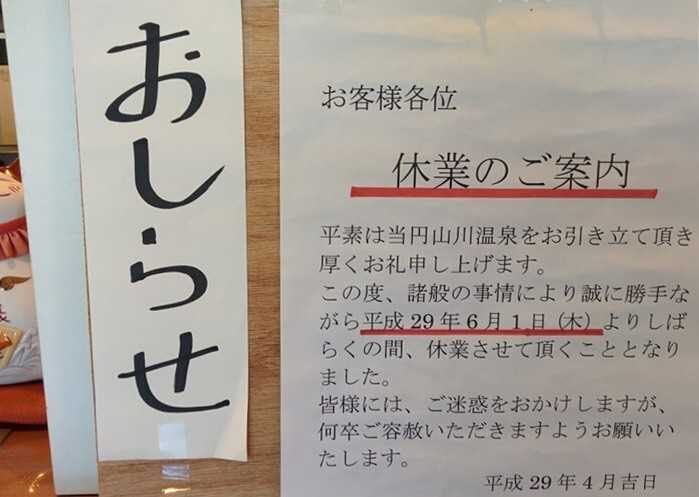 おしらせ
お客様各位
休業のご案内
平素は当円山川温泉をお引き立て頂き
厚くお礼申し上げます。
この度、諸般の事情により誠に勝手な
がら平成29年6月1日(木)よりしば
らくの間、休業させて頂くこととなり
ました。
皆様には、ご迷惑をおかけしますが、
何卒ご容赦いただきますようお願いい
たします。
平成29年4月吉日